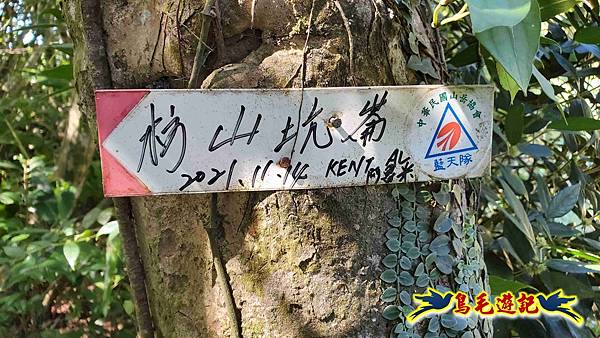 粉山坑崙
2021.11.14 KENT
中華民國山岳協會
藍天隊
鳥毛遊記